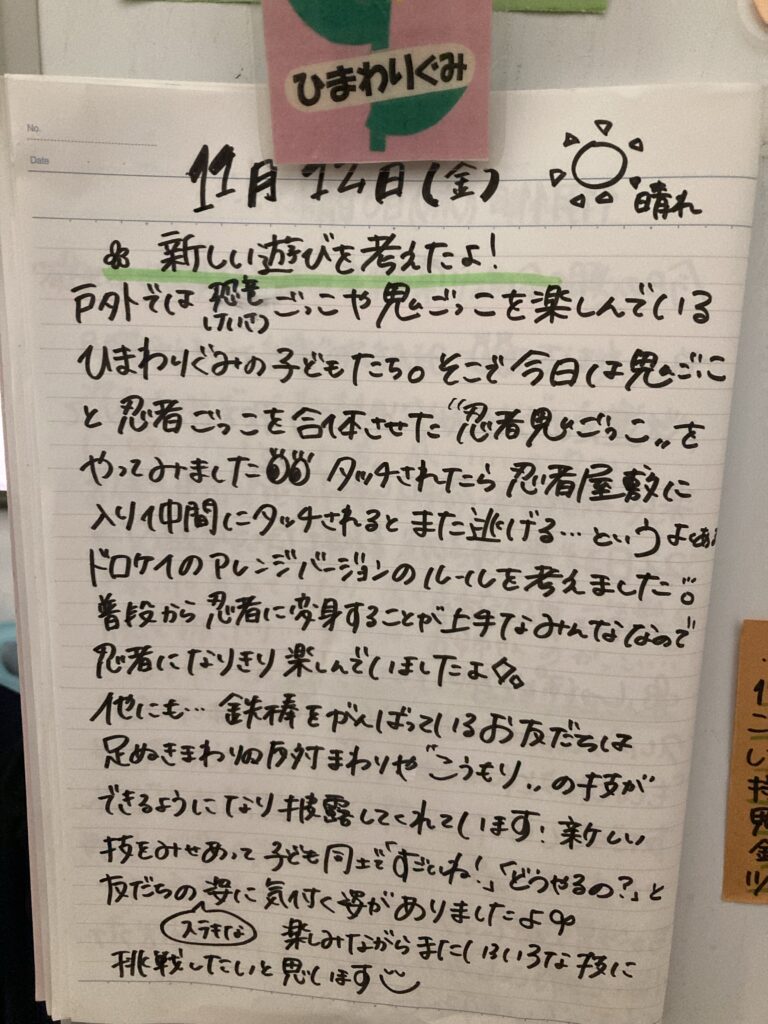 ひまわりぐみ
No.
Date
11月14日(金)
晴れ
新しい遊びを考えたよ!
戸外では恐竜ごっこや鬼ごっこを楽しんでいる
けいさつ
ひまわりぐみの子どもたち。そこで今日は鬼ごっこ
と忍者ごっこを合体させた“忍者鬼ごっこ„を
やってみました タッチされたら忍者屋敷に
入り仲間にタッチされるとまた逃げる…という
ドロケイのアレンジバージョンのルールを考えました
普段から忍者に変身することが上手なみんななので
忍者になりきり楽しんでいましたよ。
他にも…鉄棒をがんばっているお友だちは
足ぬきまわりの反対まわりや“こうもり„の技が
できるようになり披露してくれています!新しい
技をみせあって子ども同士で「すごいね!」「どうやるの?」と
友だちの姿に気付く姿がありましたよ
ステキな
楽しみながらまたいろいろな技に
挑戦したいと思います